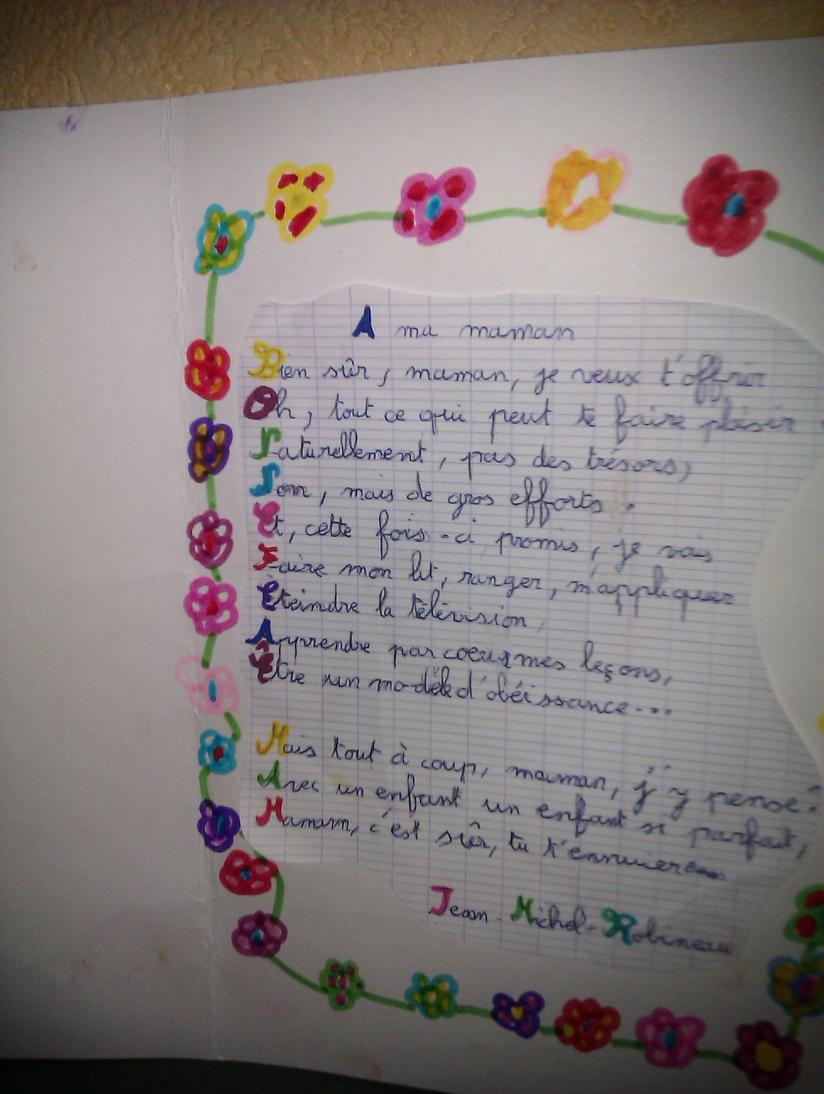 A ma maman
Bien sûr, maman, je veux t'offrir
Oh, tout ce qui peut te faire plaisir
Naturellement, pas des trésors,
Non, mais de gros efforts.
Et, cette fois-ci promis, je vais
Faire mon lit, ranger, m'appliquer
Éteindre la télévision,
Apprendre par coeur mes leçons,
Être un modèle d'obéissance...
Mais tout à coup, maman, j'y pense:
Avec un enfant un enfant si parfait,
Maman, c'est sûr, tu t'ennuieras
Jean-Michel-Robineau